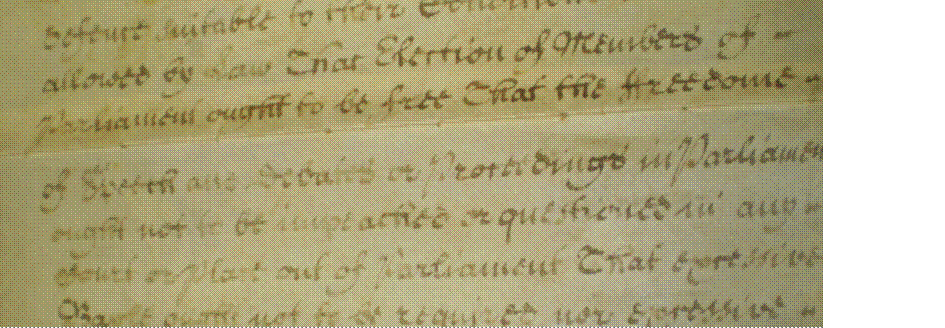 defence suitable to their Condition
allowed by Law That Election of Members of
Parliament ought to be free That the ffreedome
of Speech and Debates or Proceedings in Parliamen
ought not to be impeached or questioned in any
Court or Place out of Parliament That excessive
Baile ought not to be required nor excessive